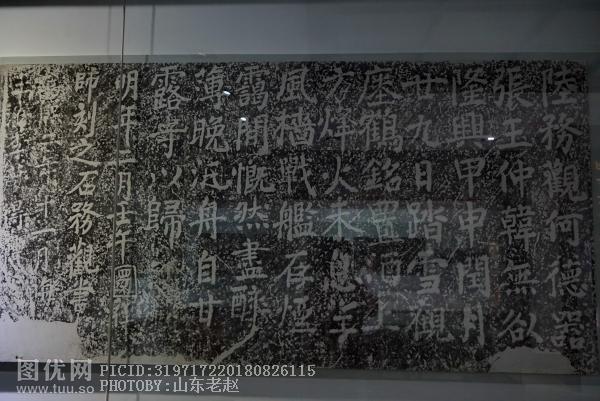 陸務觀何德器
張玉仲韓無咎
隆興甲申閏月
廿九日踏雪觀
瘞鶴銘置酒上
方烽火未息望
風檣戰艦在煙
靄間慨然盡醉
薄晚泛舟自甘
露寺以歸
明年二月壬午圜
師刻之石務觀書
图优网 PICID:319717220180826115
www.tuu.so PHOTOBY:山东老赵